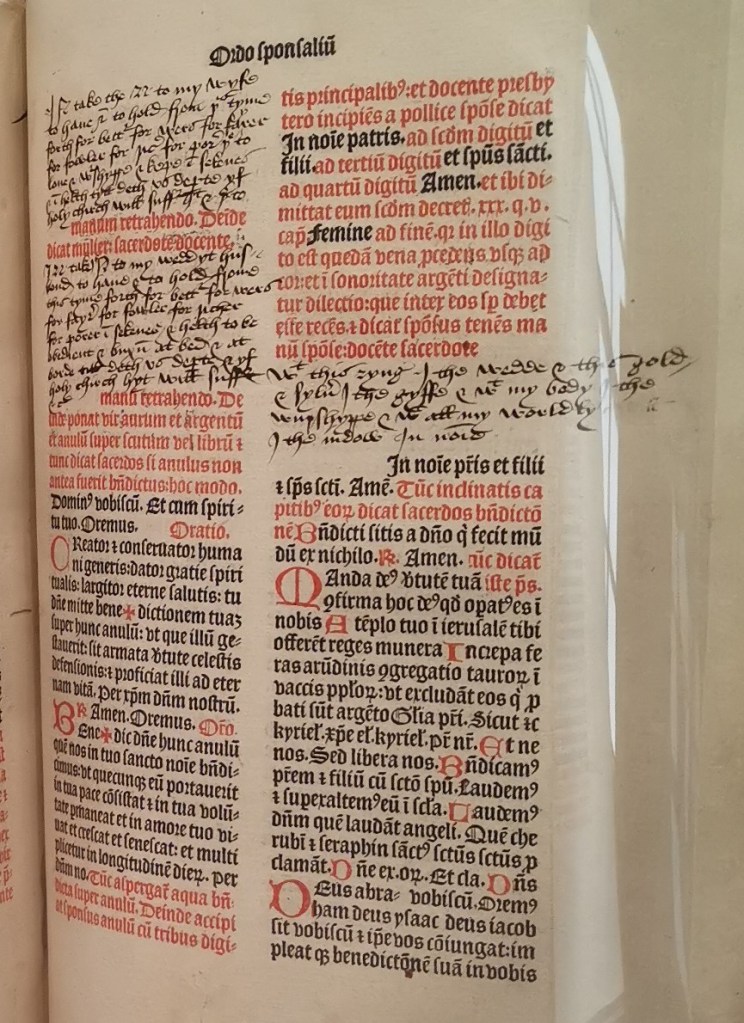 Ordo sponsaliū
I N take the N to my wyfe
to have & to hold from þs tyme
forth for bettr for wers for fairer
for fowler for
& helth tyll deth vs departe yf
holy church will
manum retrahendo. Deīde
dicat mulier: sacerdote docente.
I N take N to my weddyt hus-
bond to have & to hold frome
this tyme forth for bettr for wers
for fayrr for fowler for richer
for porer ī sekenes & helth to be
at bed & at
borde till deth vs departe & yf
holy church hyt will suffer
manū retrahendo. De
inde ponat vir aurum et argentū
et anulū super scutum vel librū ⁊
tunc dicat sacerdos si anulus non
antea fuerit bn̄dictus: hoc modo.
Dominꝰ vobiscū. Et cum spiri⸗
tu tuo. Oremus. Oratio.
CReator ⁊ conseruator huma
ni generis: dator gratie spiri
tualis: largitor eterne salutis: tu
dn̄e mitte bene✠dictionem tuaꝫ
super hunc anulū: vt que illū ge⸗
stauerit: sit armata v̓tute celestis
defensionis: ⁊ proficiat illi ad eter
nam vitā. Per xp̄m dn̄m nostrū.
℟. Amen. Oremus. Oro.
BEne✠dic dn̄e hunc anulū
quē nos in tuo sancto noīe bn̄di⸗
cimus: vt quecunqꝫ eū portauerit
in tua pace cōsistat ⁊ in tua volū⸗
tate ꝑmaneat et in amore tuo vi⸗
uat et crescat et senescat: et multi
plicetur in longitudinē dieꝝ. Per
dn̄m no. Tūc aspergat̄ aqua bn̄⸗
dicta super anulū. Deinde accipi
at sponsus anulū cū tribus digi⸗
tis principalibꝰ: et docente presby
tero incipiēs a pollice spōse dicat
In noīe patris. ad scd̄m digitū et
filii. ad tertiū digitū et sp̄us sāctī.
ad quartū digitū Amen. et ibi di⸗
mittat eum scd̄m decret. xxx. q. v.
cap̄ Femine ad finē. qꝛ in illo digi
to est quedā vena ꝓcedēs vsqꝫ ad
cor: et ī sonoritate argēti designa⸗
tur dilectio: que inter eos sp̄ debet
esse recēs. ⁊ dicat spōsus tenēs ma
nū spōse: docēte sacerdote
Wt this ryng I the wedde & ths gold
& sylvr I the gyffe & wt my body I the
& wt all my worldly
I the indow In noīe
In noīe pr̄is et filii
⁊ sp̄s sctī. Amē. Tūc inclinatis ca
pitibꝰ eoꝝ dicat sacerdos bn̄dictō
nē Bn̄dicti sitis a dn̄o q̇ fecit mū
dū ex nichilo. ℟. Amen. tūc dicat̄
MAnda deꝰ v̓tutē tuā iste p̄s.
ꝯfirma hoc deꝰ qd̄ opatꝰ es ī
nobis A tēplo tuo ī ierusalē tibi
offerēt reges munera Increpa fe
ras arūdinis ꝯgregatio tauroꝝ ī
vaccis pplōꝝ: vt excludāt eos q̇ ꝓ
bati sūt argēto Gl̄ia pr̄i. Sicut ⁊c
kyriel. xp̄e el. kyriel. pr̄ nr̄. Et ne
nos. Sed libera nos. Bn̄dicamꝰ
pr̄em ⁊ filiū cū sctō spū. Laudemꝰ
⁊ superxaltemꝰ eū ī scl̄a. Laudemꝰ
dn̄m quē laudāt angeli. Quē che
rubī ⁊ seraphin sāctꝰ sctūs sctūs ꝓ
clamāt. Dn̄e ex. oꝝ. Et cla. Dn̄s
vobiscū. Oremꝰ
DEus abra⸗
ham deus ysaac deus iacob
sit vobiscū ⁊ ip̄e vos cōiungat: im
pleat qꝫ benedictōnē suā in vobis